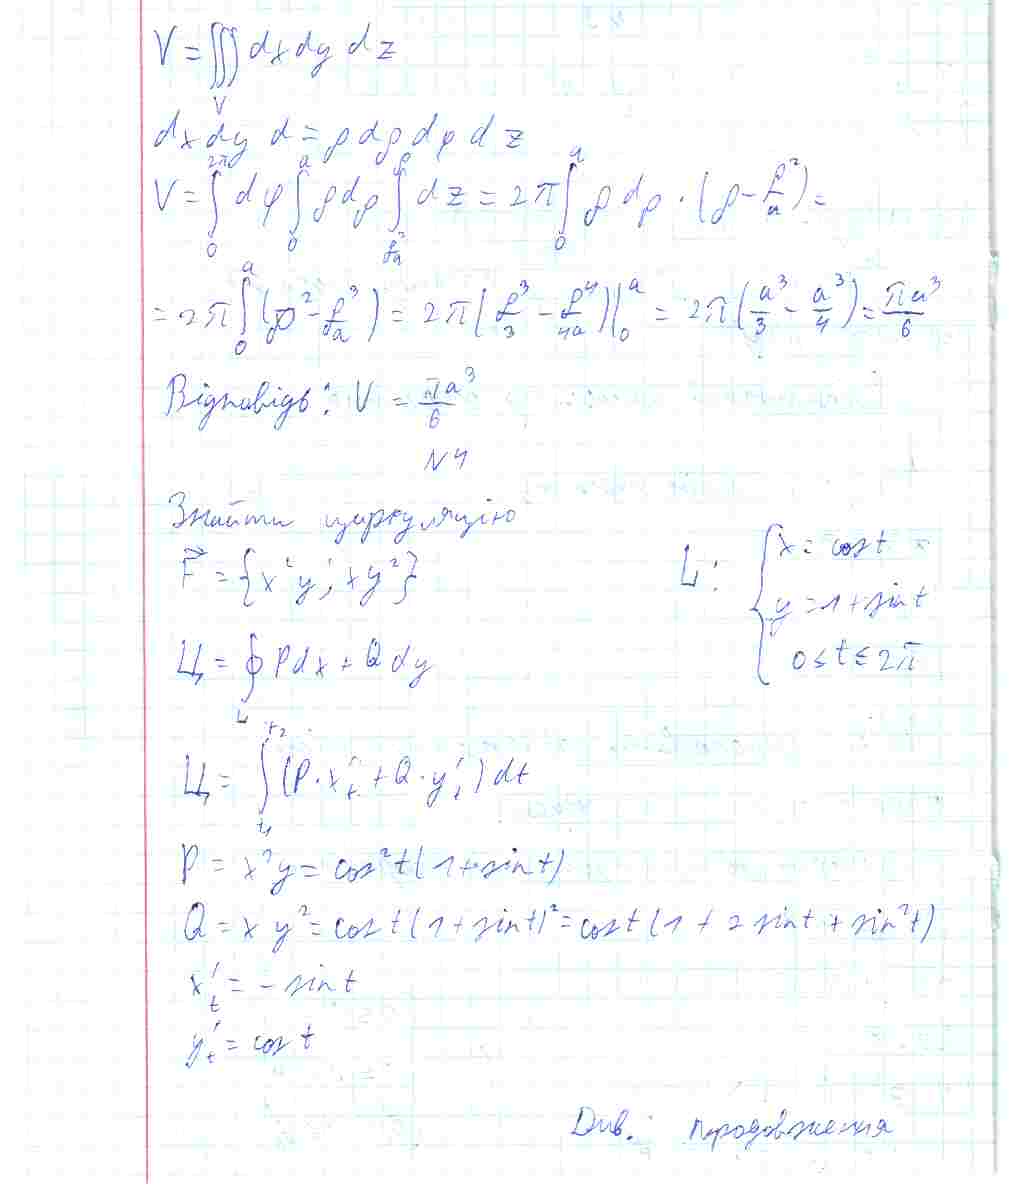 V = ∭_V dx dy dz
dx dy d = ρ dρ dφ dz
V = ∫_0^{2π} dφ ∫_0^a ρ dρ ∫_{ρ²/a}^ρ dz = 2π ∫_0^a ρ dρ · (ρ - ρ²/a) =
= 2π ∫_0^a (ρ² - ρ³/a) = 2π (ρ³/3 - ρ⁴/4a)|_0^a = 2π (a³/3 - a³/4) = πa³/6
Відповідь: V = πa³/6
N4
Знайти циркуляцію
F⃗ = {x²y; xy²}
L: { x = cos t
y = 1 + sin t
0 ≤ t ≤ 2π
Ц = ∮_L Pdx + Qdy
Ц = ∫_{t₁}^{t₂} (P · x'_t + Q · y'_t) dt
P = x²y = cos²t (1 + sin t)
Q = xy² = cos t (1 + sin t)² = cos t (1 + 2 sin t + sin²t)
x'_t = - sin t
y'_t = cos t
Див. продовження